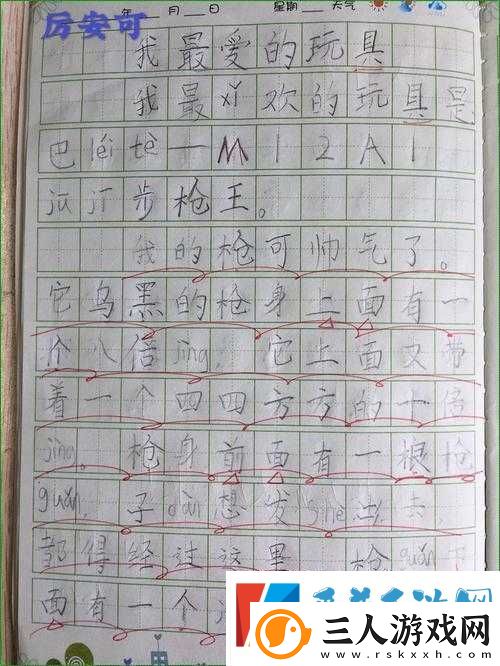 年 月 日 星期 天气
厉安可
我最爱的玩具
我最xǐ欢的玩具是
巴léi tè一M12A1
jū jī步枪王。
我的枪可帅气了。
它乌黑的枪身上面有一
个八倍jìng，它上面又带
着一个四四方方的十倍
jìng。枪身前面有一根枪
guǎn，子dàn想发shè出去，
都得经过这里。枪guǎn下
面有一个
三人游戏网
www.rskxxh.com